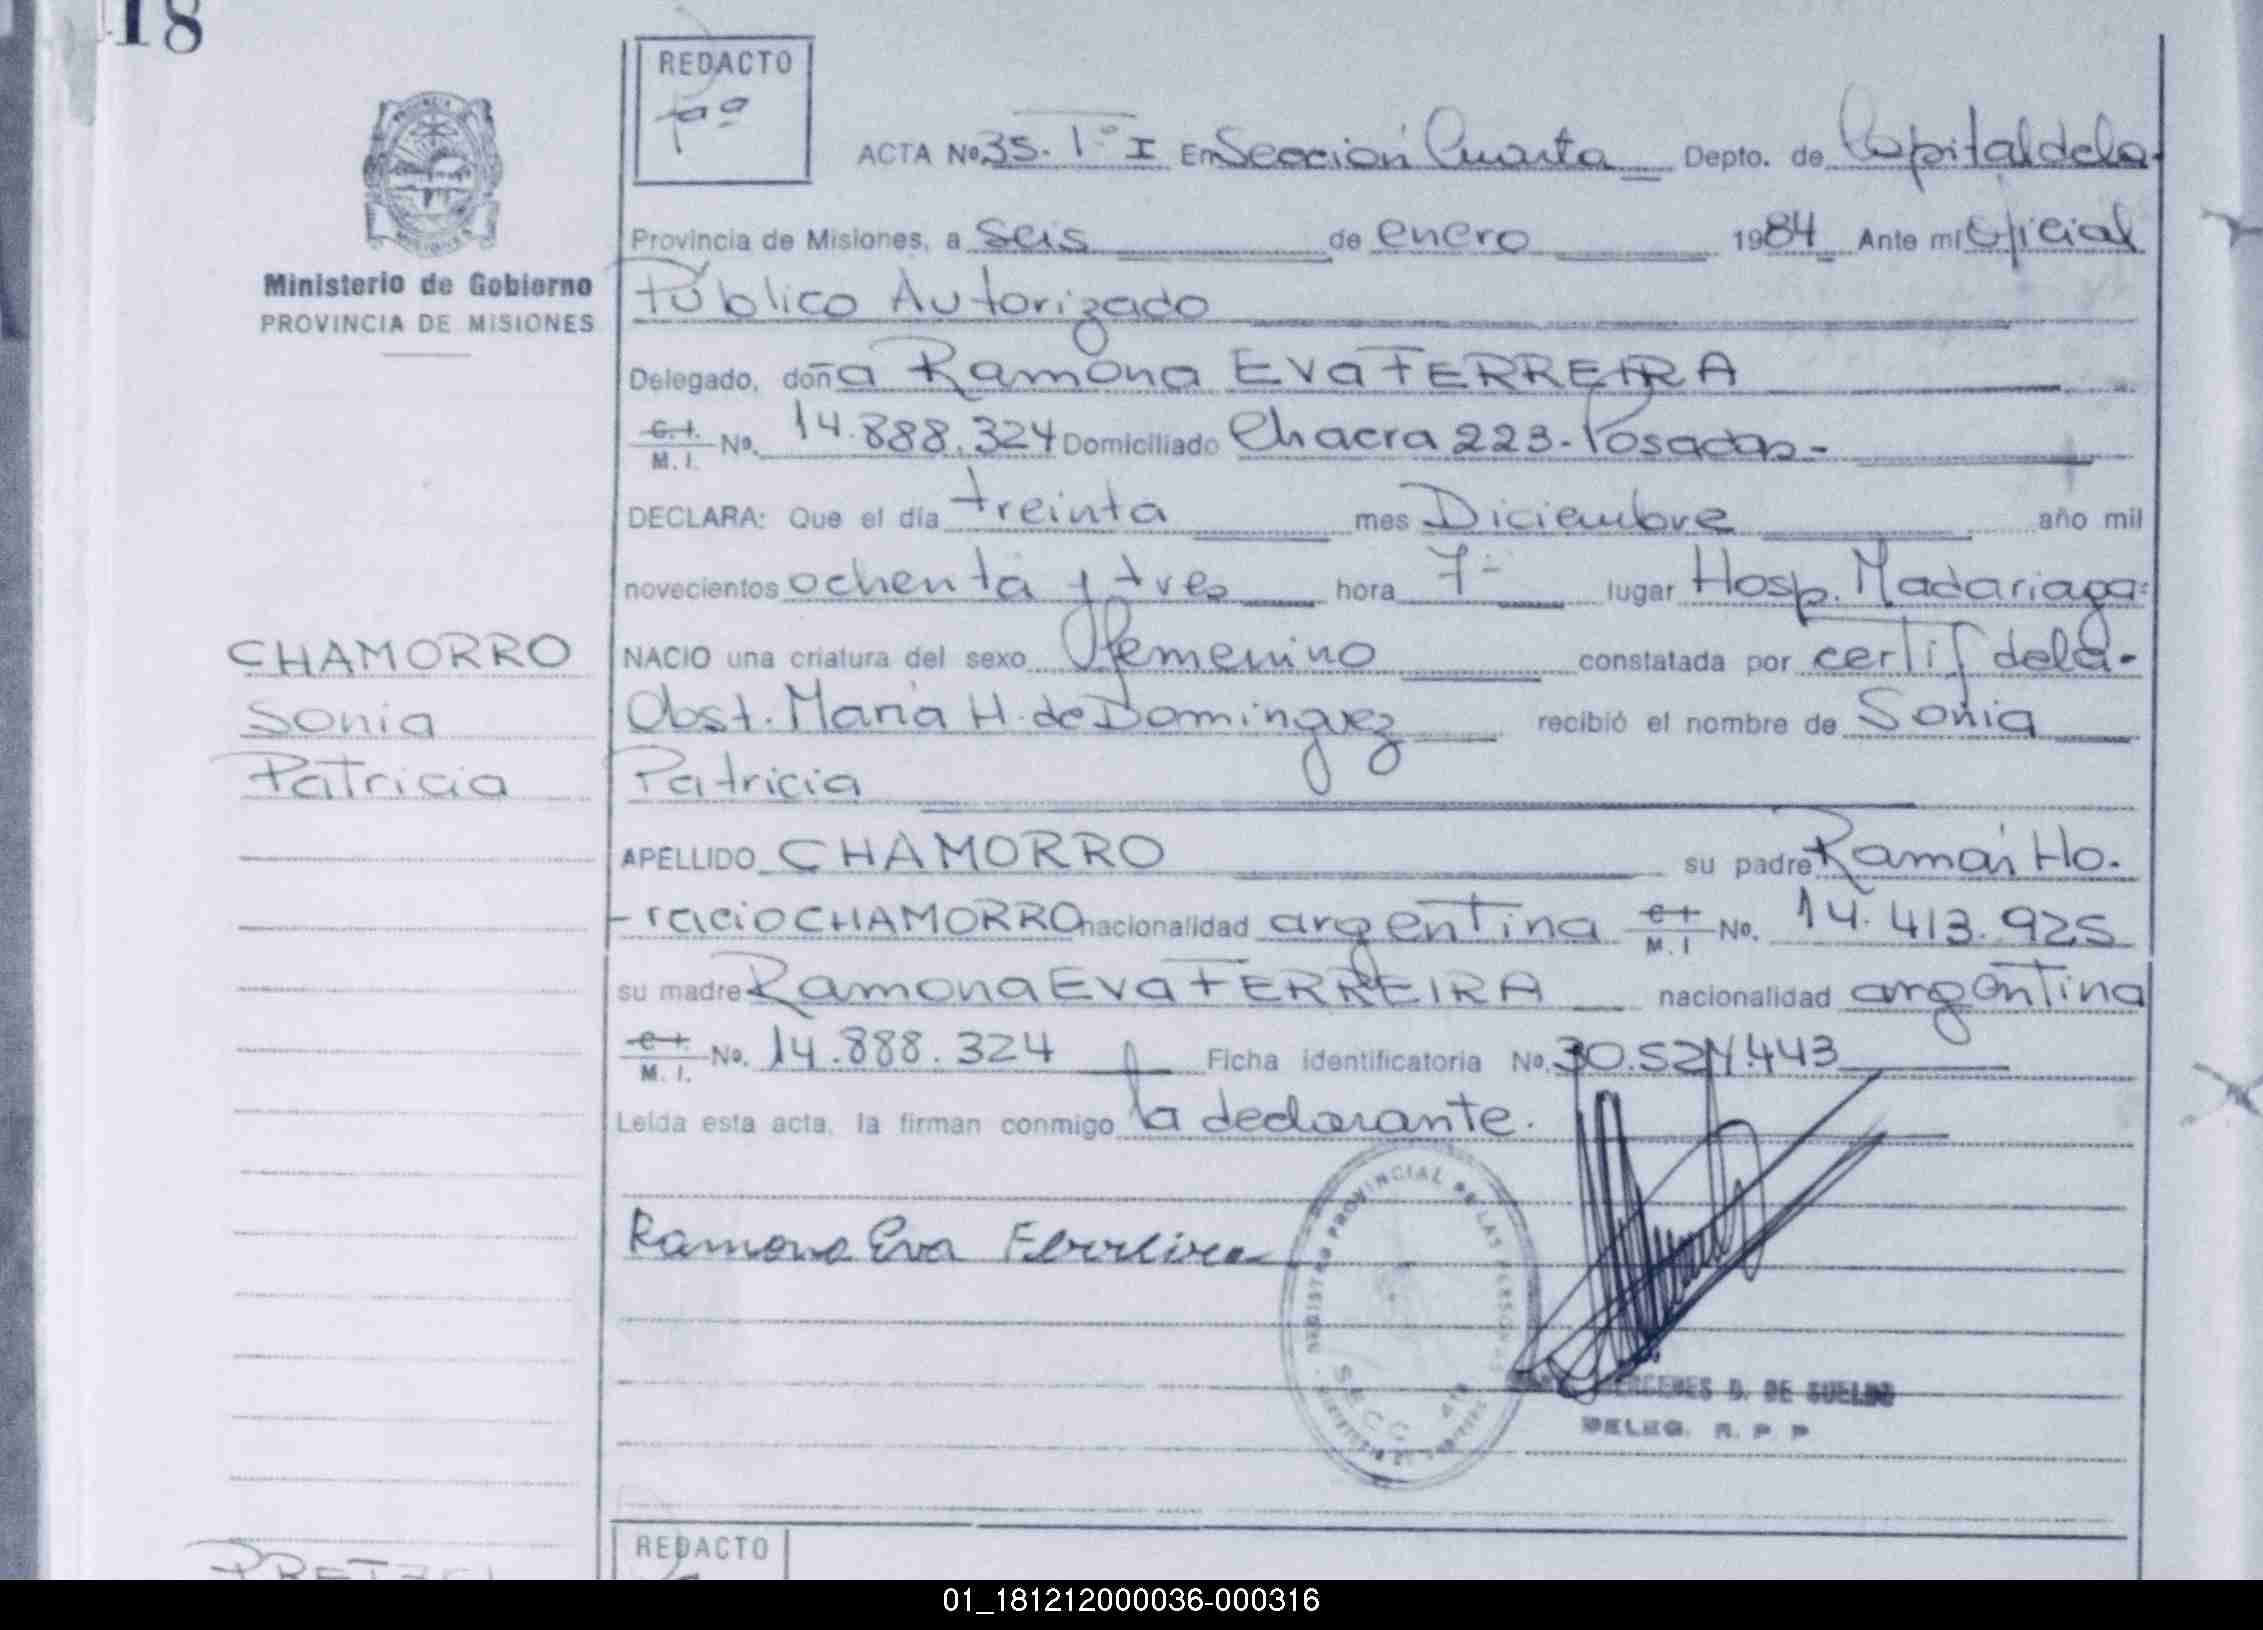 18
REDACTO
Ministerio de Gobierno
PROVINCIA DE MISIONES
ACTA Nº 35. 1º I En Sección Cuarta Depto. de Capital de la
Provincia de Misiones, a seis de enero 1984 Ante mi Oficial
Público Autorizado
Delegado, doña Ramona Eva FERREIRA
C.I. M.I. Nº. 14.888.324 Domiciliado Chacra 223- Posadas-
DECLARA: Que el día treinta mes Diciembre año mil
novecientos ochenta y tres hora 7- lugar Hosp. Madariaga
CHAMORRO
Sonia
Patricia
NACIO una criatura del sexo femenino constatada por certif de la-
Obst. Maria H. de Dominguez recibió el nombre de Sonia
Patricia
APELLIDO CHAMORRO su padre Ramón Ho-
-racio CHAMORRO nacionalidad argentina C.I. M.I Nº. 14.413.925
su madre Ramona Eva FERREIRA nacionalidad argentina
C.I. M.I. Nº. 14.888.324 Ficha identificatoria Nº. 30.521.443
Leída esta acta, la firman conmigo la declarante.
Ramona Eva Ferreira
REGISTRO PROVINCIAL DE LAS PERSONAS
SECC 4ta
MERCEDES D. DE SUELDO
DELEG. R. P P
REDACTO
PRETZEL
01_181212000036-000316